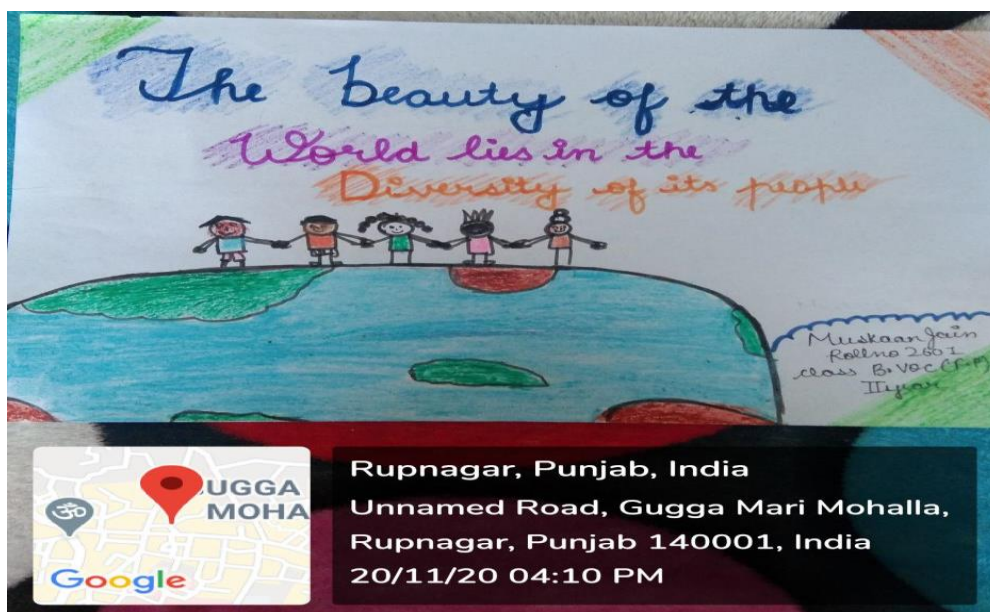 The beauty of the
World lies in the
Diversity of its people
Muskaan Jain
Rollno 2601
class B.VOC (F.P)
II year
UGGA
MOHA
Google
Rupnagar, Punjab, India
Unnamed Road, Gugga Mari Mohalla,
Rupnagar, Punjab 140001, India
20/11/20 04:10 PM